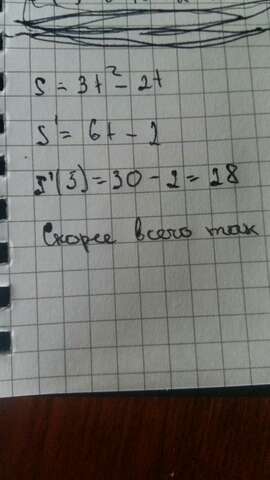 S = 3t² - 2t
S' = 6t - 2
S'(5) = 30 - 2 = 28
Скорее всего так